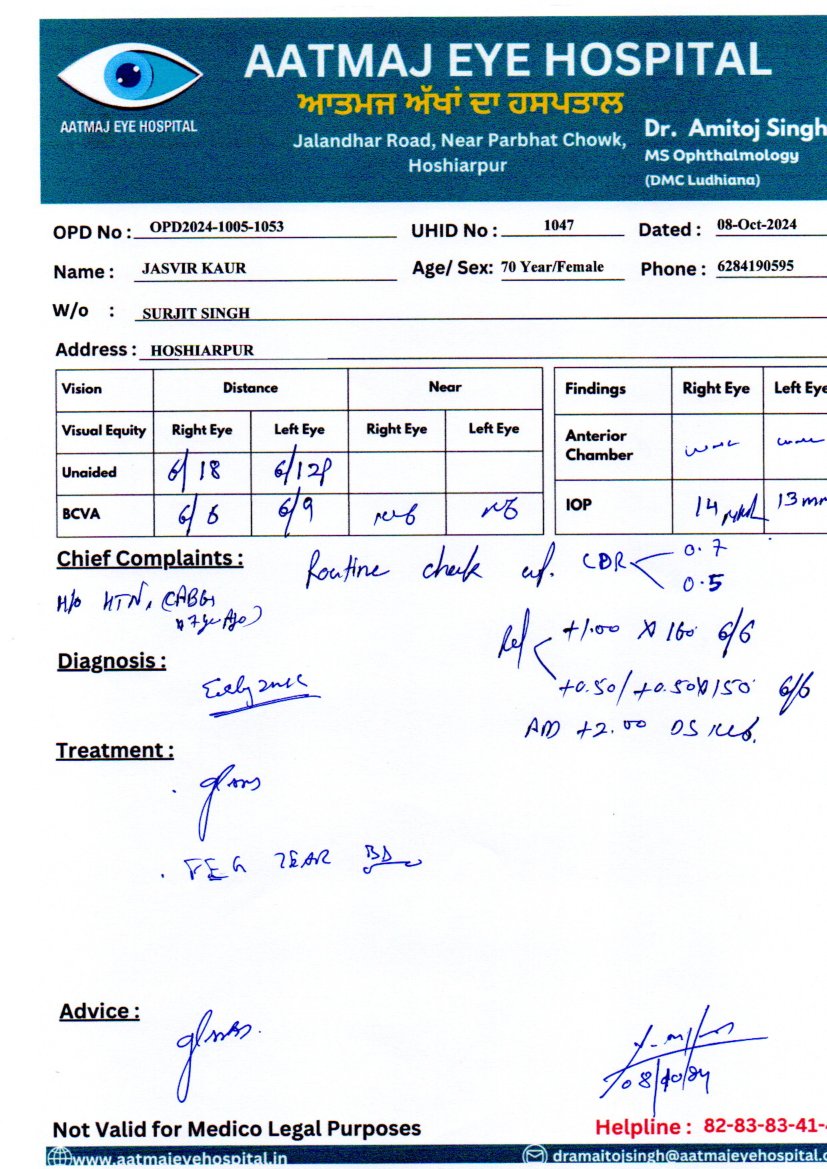 AATMAJ EYE HOSPITAL
ਆਤਮਜ ਅੱਖਾਂ ਦਾ ਹਸਪਤਾਲ
AATMAJ EYE HOSPITAL
Jalandhar Road, Near Parbhat Chowk,
Hoshiarpur
Dr. Amitoj Singh
MS Ophthalmology
(DMC Ludhiana)
OPD No : OPD2024-1005-1053 UHID No : 1047 Dated : 08-Oct-2024
Name : JASVIR KAUR Age/ Sex: 70 Year/Female Phone : 6284190595
W/o : SURJIT SINGH
Address : HOSHIARPUR
Vision Distance Near
Visual Equity Right Eye Left Eye Right Eye Left Eye
Unaided 6/18 6/12P
BCVA 6/6 6/9 N6 N6
Findings Right Eye Left Eye
Anterior
Chamber
IOP 14 13 mm
Chief Complaints : Routine check up. CDR 0.7
0.5
H/o HTN, CABG
Ref +1.00 X 160 6/6
+0.50/+0.50X150 6/6
ADD +2.00 DS N6.
Diagnosis :
Treatment :
. glass
. TEAR BD
Advice :
glasses.
08/10/24
Not Valid for Medico Legal Purposes
Helpline : 82-83-83-41-
www.aatmajeyehospital.in
dramaitojsingh@aatmajeyehospital.c